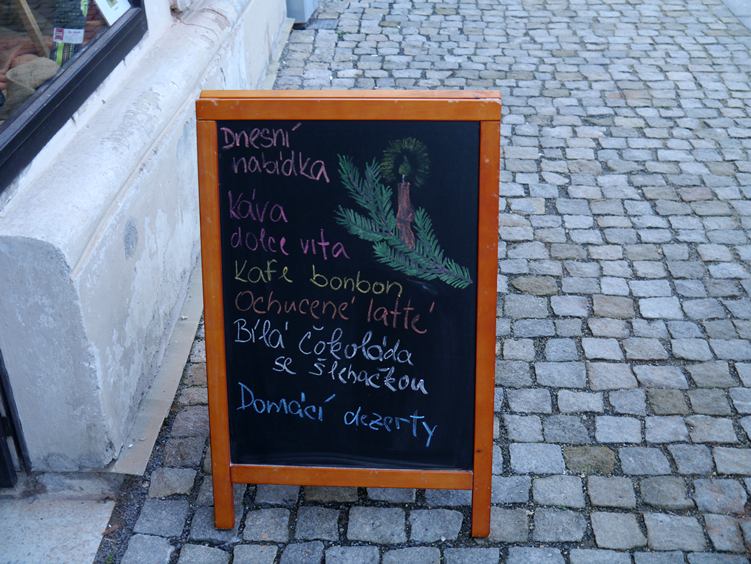 Dnesní
nabídka
Káva
dolce vita
Kafe bonbon
Ochucené latté
Bílá čokoláda
se šlehačkou
Domácí dezerty